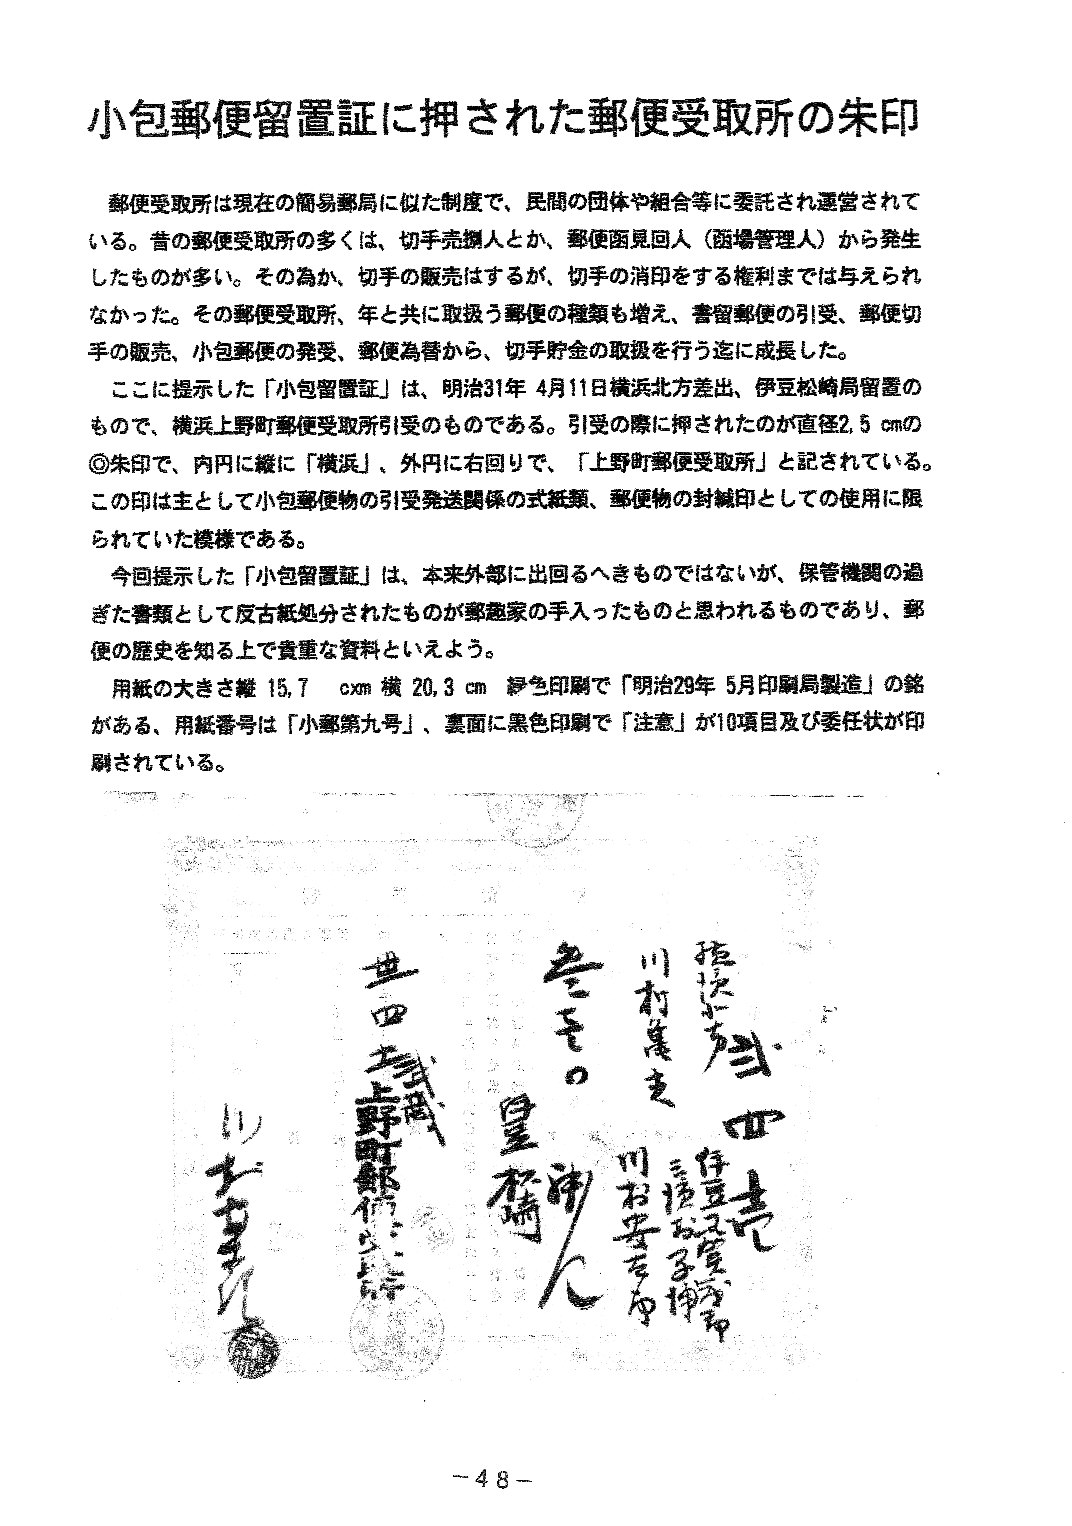 小包郵便留置証に押された郵便受取所の朱印
郵便受取所は現在の簡易郵局に似た制度で、民間の団体や組合等に委託され運営されて
いる。昔の郵便受取所の多くは、切手売捌人とか、郵便函見回人（函場管理人）から発生
したものが多い。その為か、切手の販売はするが、切手の消印をする権利までは与えられ
なかった。その郵便受取所、年と共に取扱う郵便の種類も増え、書留郵便の引受、郵便切
手の販売、小包郵便の発受、郵便為替から、切手貯金の取扱を行う迄に成長した。
ここに提示した「小包留置証」は、明治31年 4月11日横浜北方差出、伊豆松崎局留置の
もので、横浜上野町郵便受取所引受のものである。引受の際に押されたのが直径2,5 cmの
◎朱印で、内円に縦に「横浜」、外円に右回りで、「上野町郵便受取所」と記されている。
この印は主として小包郵便物の引受発送関係の式紙類、郵便物の封緘印としての使用に限
られていた模様である。
今回提示した「小包留置証」は、本来外部に出回るへきものではないが、保管機関の過
ぎた書類として反古紙処分されたものが郵趣家の手入ったものと思われるものであり、郵
便の歴史を知る上で貴重な資料といえよう。
用紙の大きさ縦 15,7 cxm 横 20,3 cm 緑色印刷で「明治29年 5月印刷局製造」の銘
がある、用紙番号は「小郵第九号」、裏面に黒色印刷で「注意」が10項目及び委任状が印
刷されている。
弐 四 壱
川村亀吉
伊豆松崎
武蔵
上野町郵便受取所
－48－